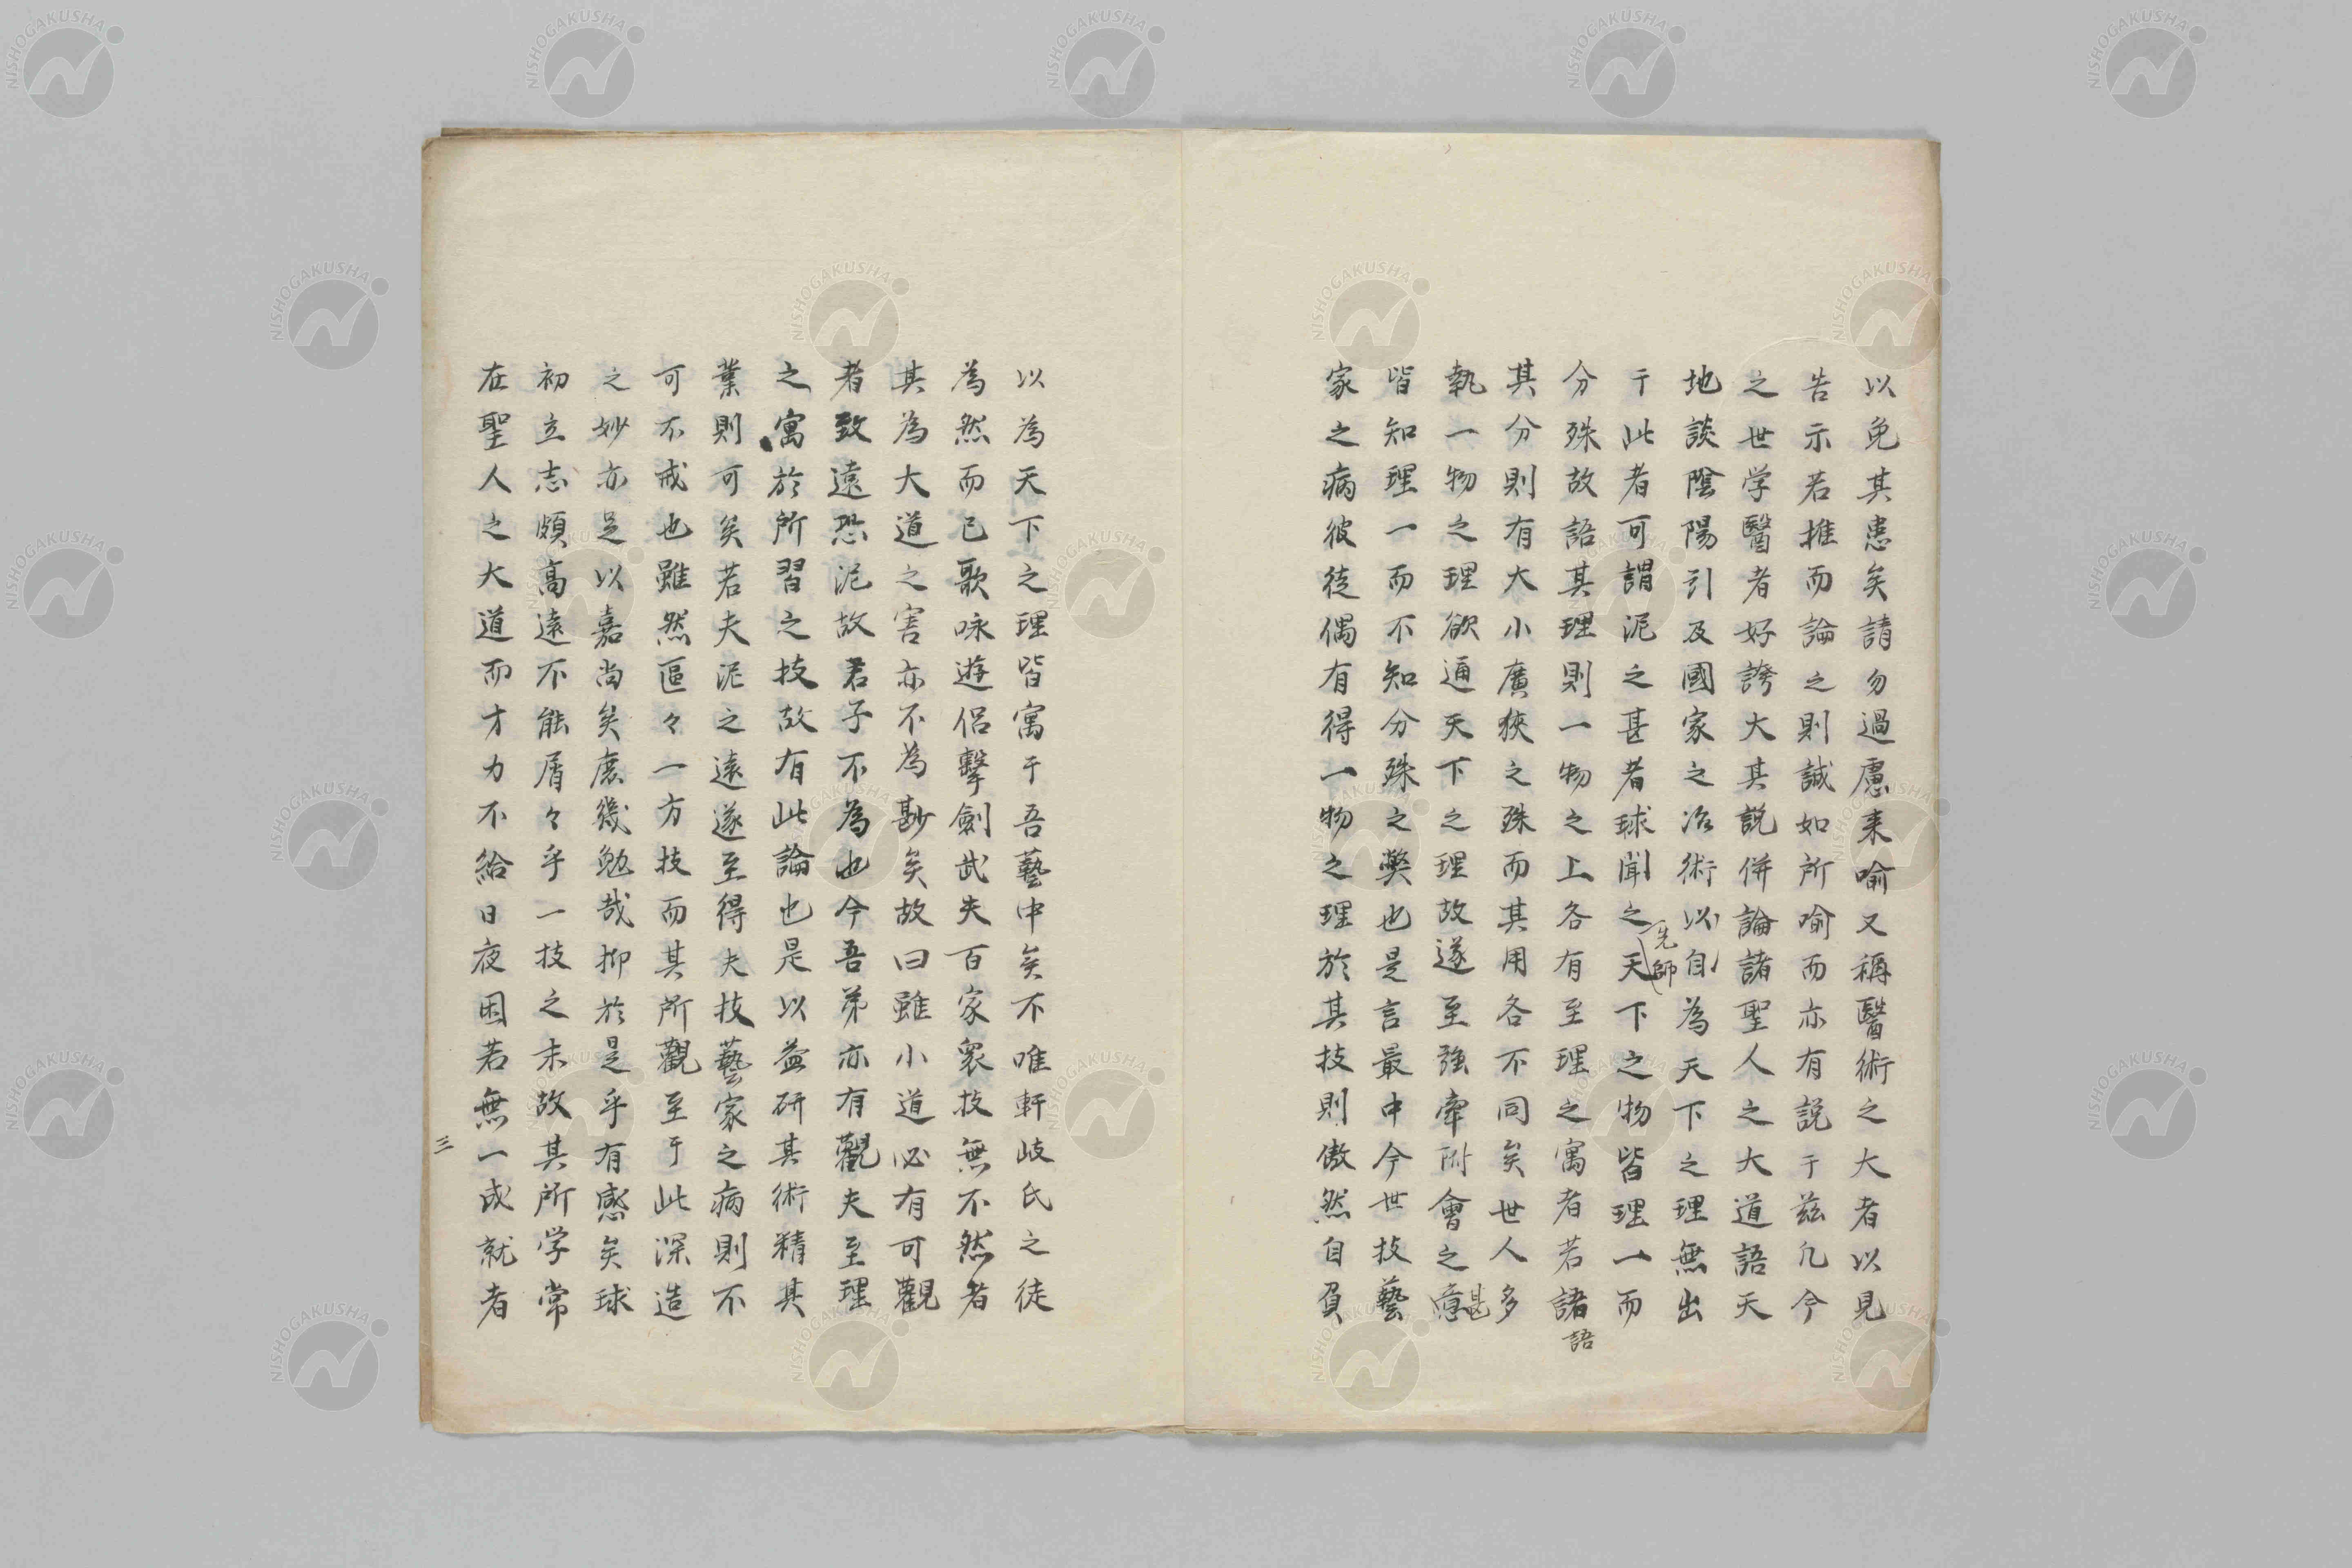 以免其患矣請勿過慮来喻又稱醫術之大者以見
告示若推而論之則誠如所喻而亦有説于茲凡今
之世学醫者好誇大其説併論諸聖人之大道語天
地談陰陽引及國家之治術以自為天下之理無出
于此者可謂泥之甚者球聞之先師天下之物皆理一而
分殊故語其理則一物之上各有至理之寓者若諸語
其分則有大小廣狹之殊而其用各不同矣世人多
執一物之理欲通天下之理故遂至強牽附會之甚意
皆知理一而不知分殊之弊也是言最中今世技藝
家之病彼徒偶有得一物之理於其技則傲然自負
以為天下之理皆寓于吾藝中矣不唯軒岐氏之徒
為然而已歌咏遊侶擊劍武夫百家衆技無不然者
其為大道之害亦不為尠矣故曰雖小道必有可觀
者致遠恐泥故君子不為也今吾弟亦有觀夫至理
之寓於所習之技故有此論也是以益研其術精其
業則可矣若夫泥之遠遂至得夫技藝家之病則不
可不戒也雖然區々一方技而其所觀至于此深造
之妙亦足以嘉尚矣庶幾勉哉抑於是乎有感矣球
初立志頗高遠不能屑々乎一技之末故其所学常
在聖人之大道而才力不給日夜困若無一成就者
三
NISHOGAKUSHA